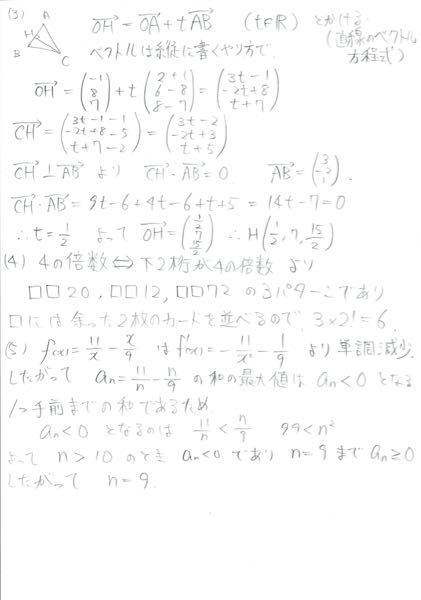 (3) A H B C OH→ = OA→ + t AB→ (t∈R) とかける。(直線のベクトル方程式)
ベクトルは縦に書くやり方で。
OH→ = (-1 8 7) + t (2+1 6-8 8-7) = (3t-1 -2t+8 t+7)
CH→ = (3t-1-1 -2t+8-5 t+7-2) = (3t-2 -2t+3 t+5)
CH→ ⊥ AB→ より CH→・AB→ = 0 AB→ = (3 -2 1).
CH→・AB→ = 9t-6+4t-6+t+5 = 14t-7=0
∴ t=1/2 よって OH→ = (1/2 7 15/2) ∴ H(1/2, 7, 15/2)
(4) 4の倍数⇔下2桁が4の倍数 より
□□20, □□12, □□72 の3パターンであり
□には余った2枚のカードを並べるので、3×2!=6.
(5) f(x)=11/x - x/9 は f'(x)=-11/x² - 1/9 より 単調減少。
したがって an=11/n - n/9 の和の最大値は an<0 となる
1つ手前までの和であるため
an<0 となるのは 11/n < n/9 99<n²
よって n>10 のとき an<0 であり n=9 まで an≧0
したがって n=9.